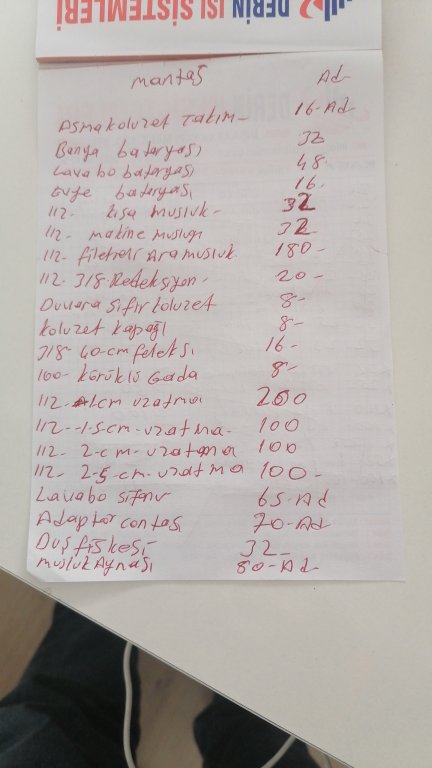 DERİN ISI SİSTEMLERİ
mantaş Ad
Asma koluzet Takım - 16-Ad
Banyo bataryası 32
Lavabo bataryası 48
Evye bataryası 16-
112- kısa musluk - 32
112- makine musluğı 32
112- filetreli Ara musluk 180-
112- 318- Redeksiyon - 20-
Duvara sıfır koluzet 8-
koluzet kapağı 8-
318- 40-cm feleksi 16-
100- körüklü Gada 8-
112- 1cm uzatma 200
112--1-5-cm-uzatma- 100
112- 2-cm-uzatma 100
112- 2-5-cm-uzatma 100-
Lavabo sifonu 65-Ad
Adaptör contası 70-Ad
Duş fiskesi- 32-
musluk Aynası 80-Ad